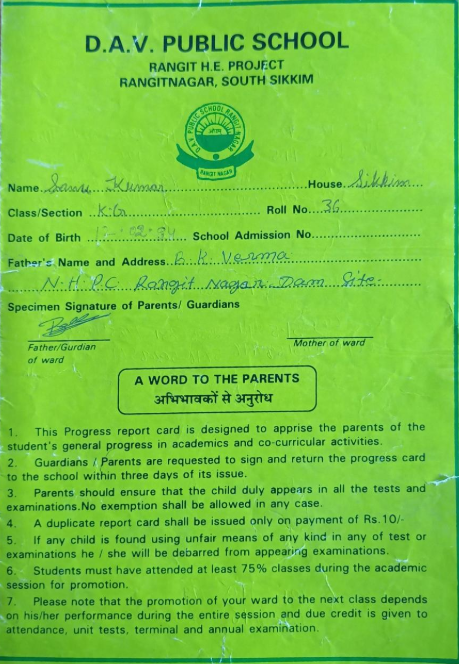 D.A.V. PUBLIC SCHOOL
RANGIT H.E. PROJECT
RANGITNAGAR, SOUTH SIKKIM
D.A.V. PUBLIC SCHOOL RANGIT NAGAR
RANGIT NAGAR
Name Sanu Kumar House Sikkim
Class/Section K.G Roll No. 36
Date of Birth School Admission No.
Father's Name and Address B. K. Verma
N.H.P.C Rangit Nagar Dam Site-
Specimen Signature of Parents/ Guardians
Father/Gurdian Mother of ward
of ward
A WORD TO THE PARENTS
अभिभावकों से अनुरोध
1. This Progress report card is designed to apprise the parents of the
student's general progress in academics and co-curricular activities.
2. Guardians / Parents are requested to sign and return the progress card
to the school within three days of its issue.
3. Parents should ensure that the child duly appears in all the tests and
examinations.No exemption shall be allowed in any case.
4. A duplicate report card shall be issued only on payment of Rs.10/-
5. If any child is found using unfair means of any kind in any of test or
examinations he / she will be debarred from appearing examinations.
6. Students must have attended at least 75% classes during the academic
session for promotion.
7. Please note that the promotion of your ward to the next class depends
on his/her performance during the entire session and due credit is given to
attendance, unit tests, terminal and annual examination.